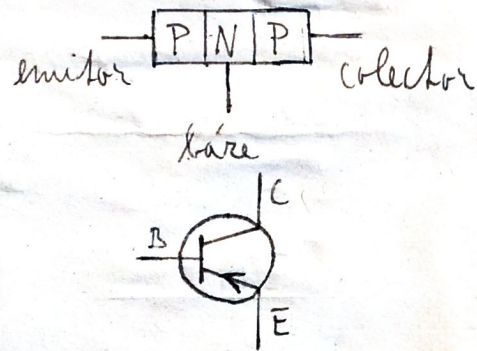 P N P
emitor colector
báze
B C
E